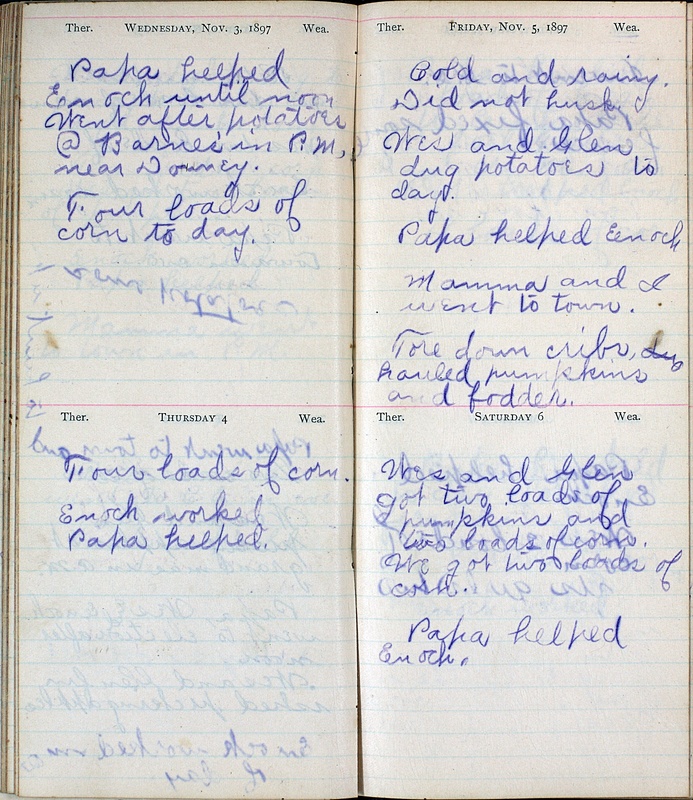 Ther. WEDNESDAY, NOV. 3, 1897 Wea.
Papa helped
Enoch until noon
Went after potatoes
@ Barnes' in P.M.,
near Downey.
Four loads of
corn to day.
Ther. THURSDAY 4 Wea.
Four loads of corn.
Enoch worked
Papa helped.
Ther. FRIDAY, NOV. 5, 1897 Wea.
Cold and rainy.
Did not husk.
Wes and Glen
dug potatoes to
day.
Papa helped Eenoch
Mamma and I
went to town.
Tore down cribs,
hauled pumpkins
and fodder.
Ther. SATURDAY 6 Wea.
Wes and Glen
got two loads of
pumpkins and
two loads of corn.
We got two loads of
corn.
Papa helped
Enoch.